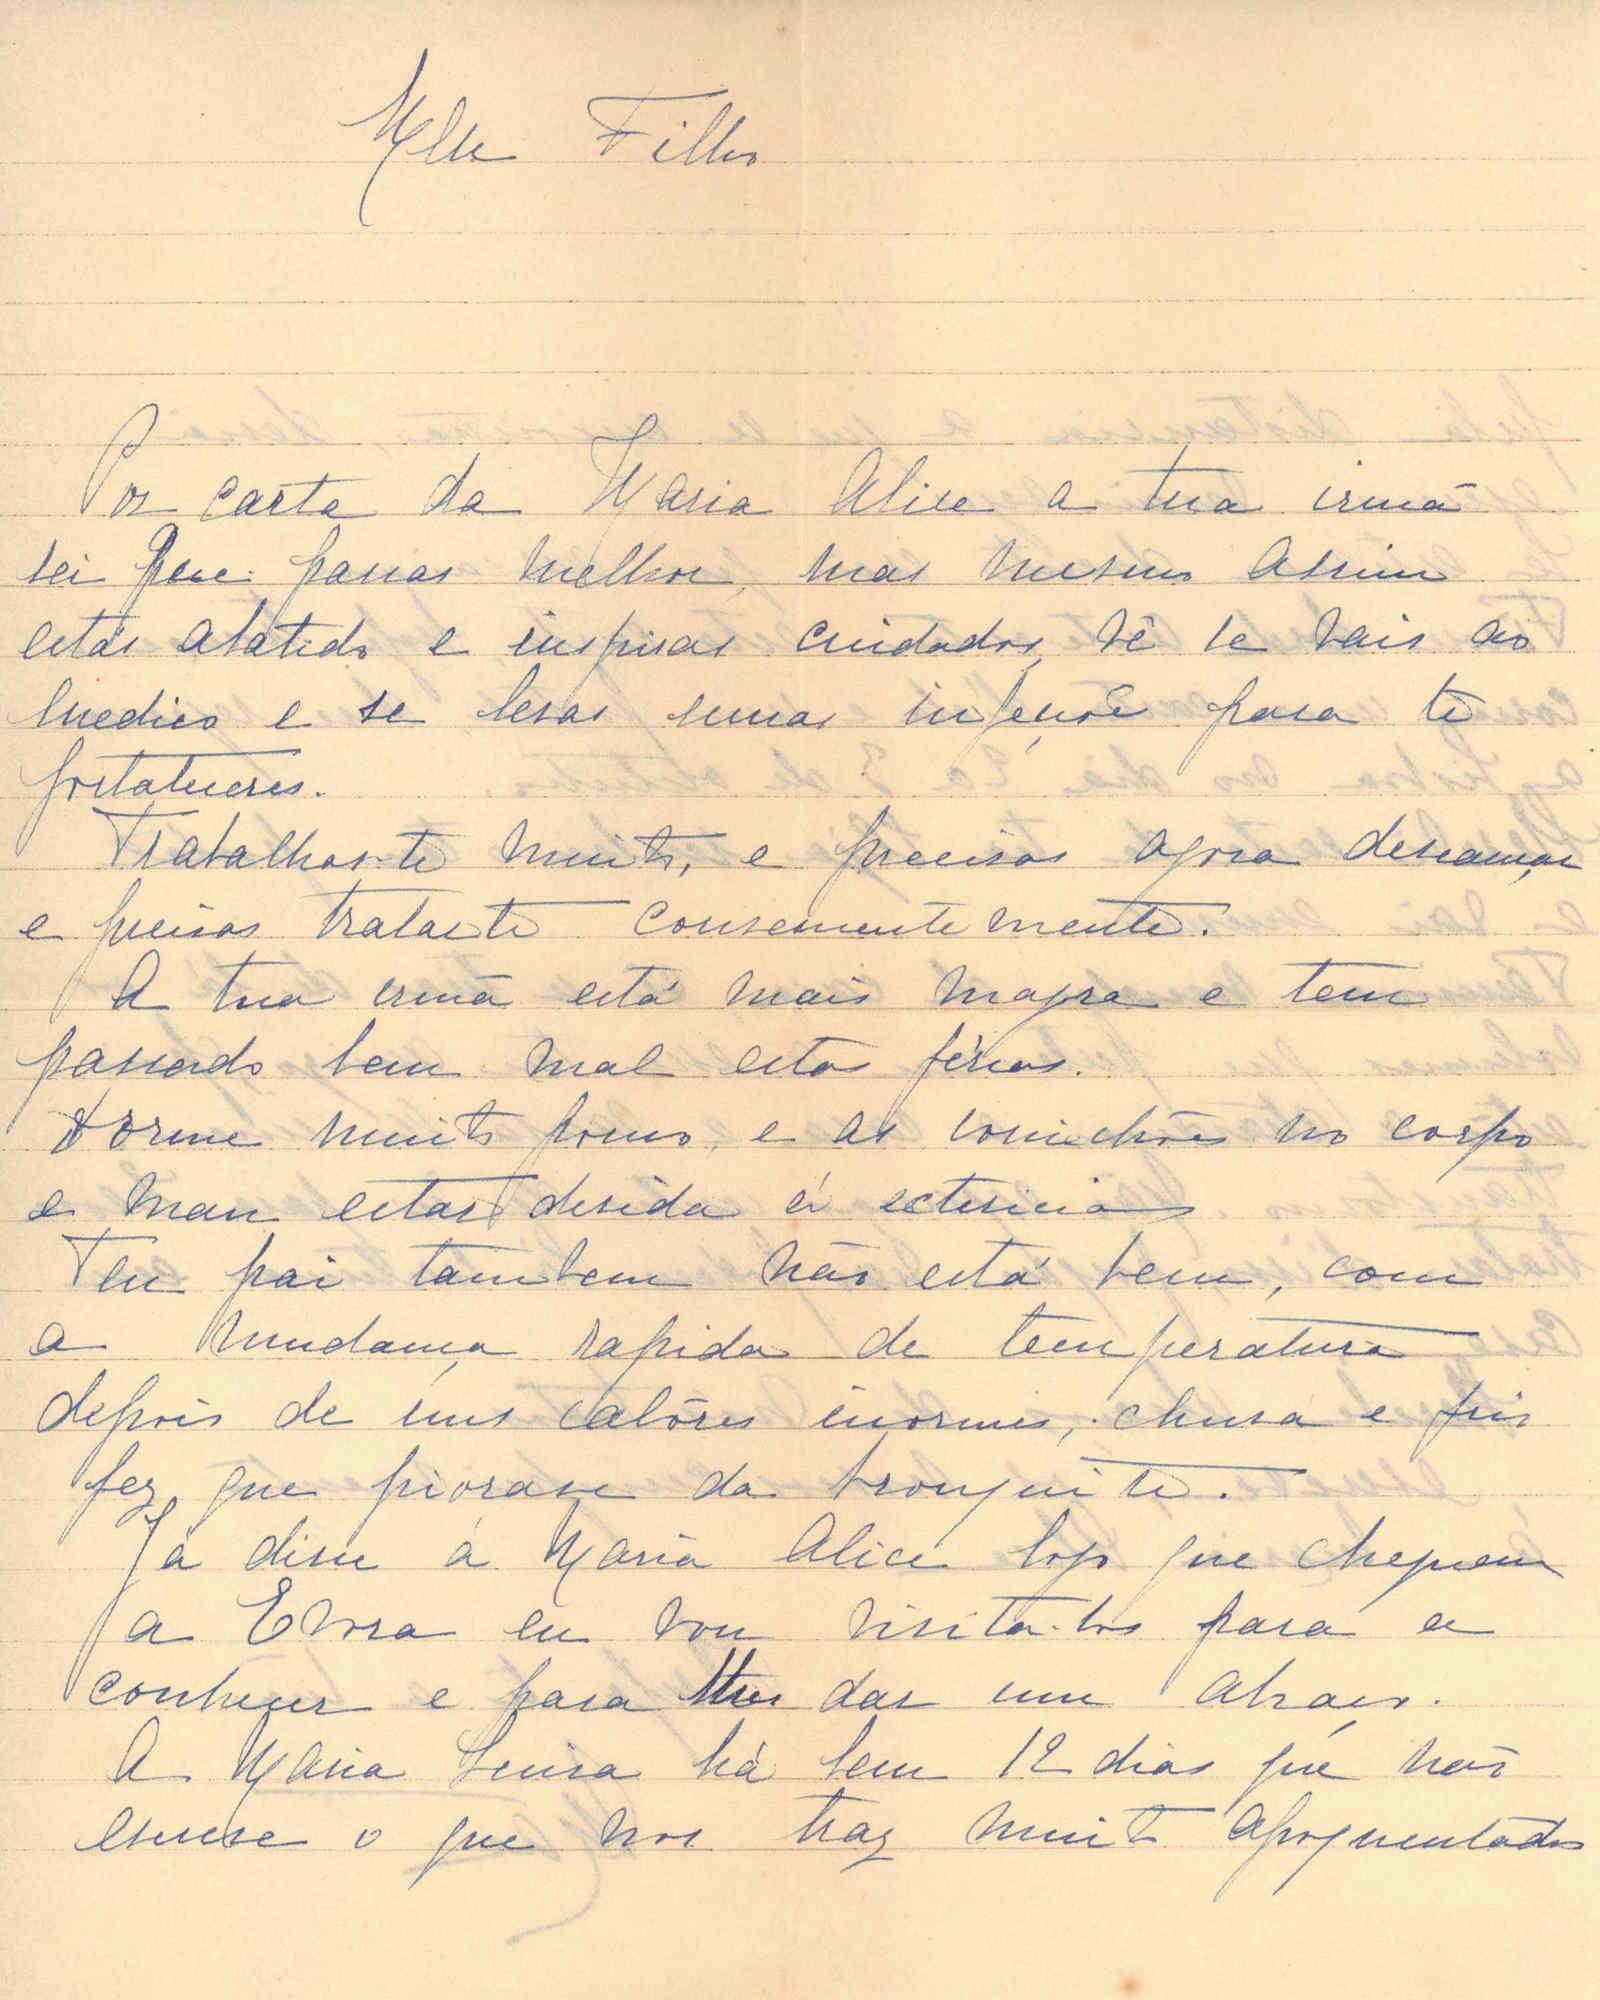 Meu Filho
Por carta da Maria Alice a tua irmã
sei que passas melhor, mas mesmo assim
estás abatido e inspiras cuidados, vê se vais ao
medico e se levas umas para te
fortaleceres.
Trabalhas-te muito, e precisas agora descançar
e precisas tratarte
A tua irmã está mais magra e tem
passado bem mal estas férias.
Dorme muito pouco, e as comichões no corpo
e mau estar devido á ictericia
Teu pai tambem não está bem, com
a mudança rapida de temperatura
depois de uns calôres inormes, chuva e frio
fez que piorase da bronquite.
Já disse á Maria Alice logo que cheguem
a Evora eu vou visita-los para a
conhecer e para lhes dar um abraço.
A Maria Luisa há bem 12 dias que não
escreve o que nos traz muito apoquentados